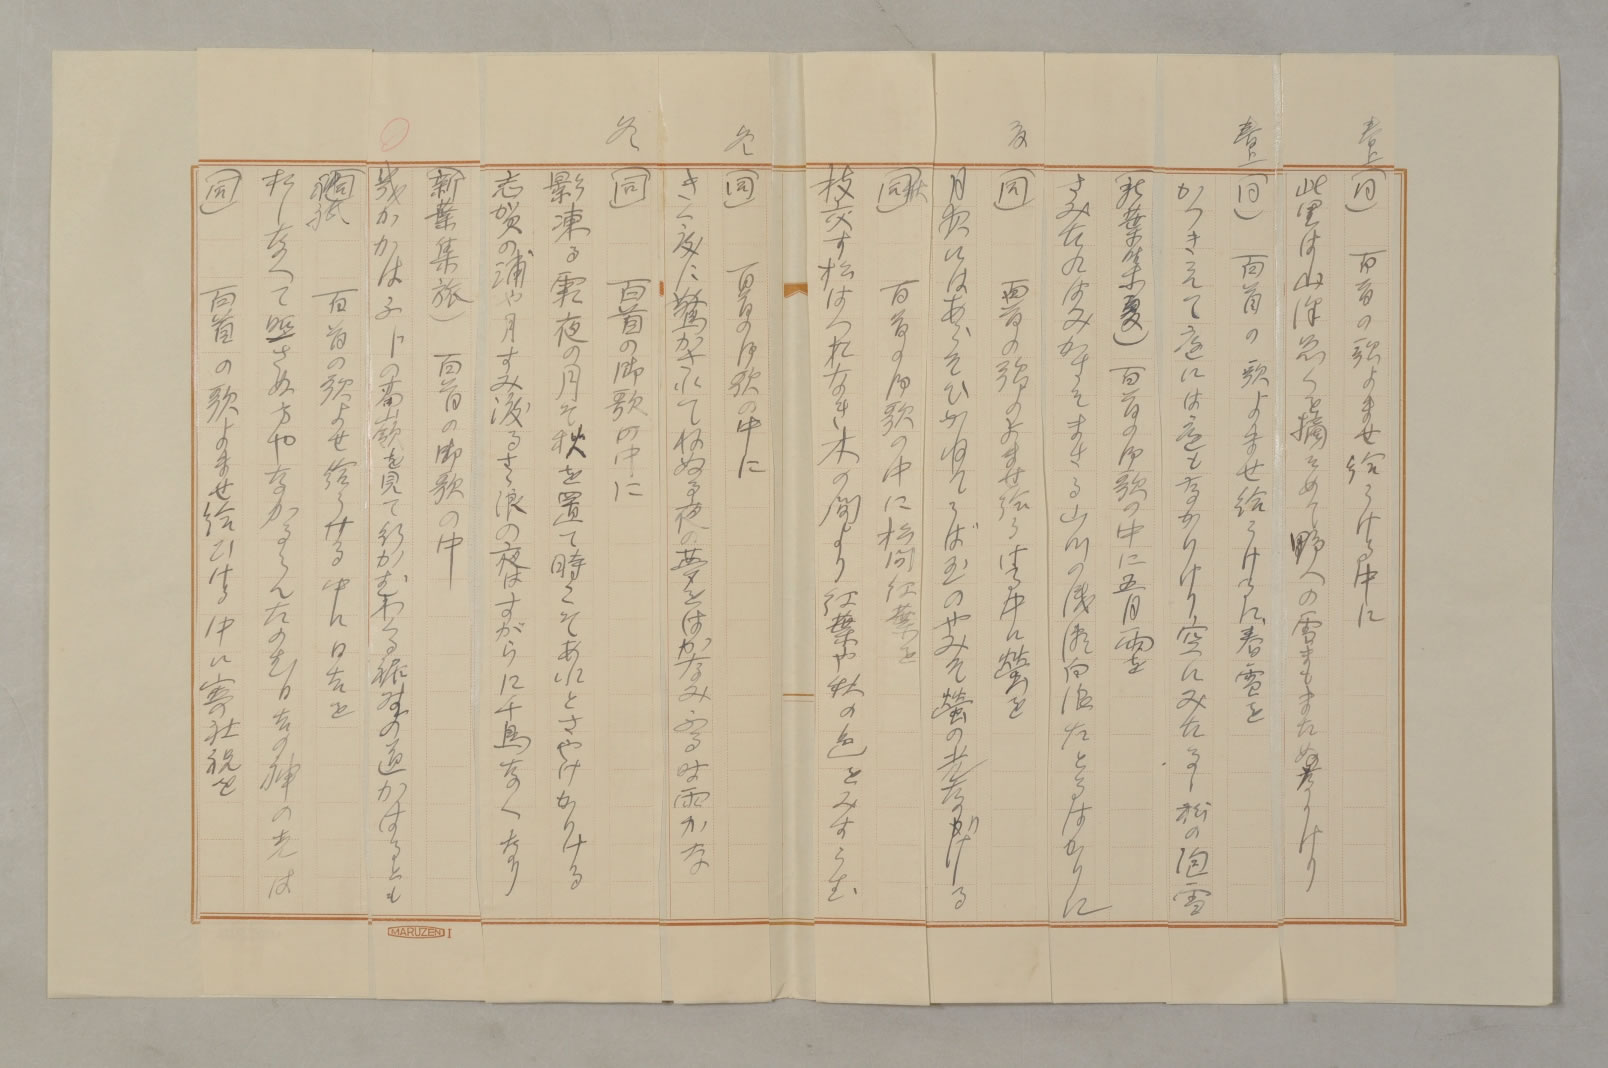 春上
(同) 百首の歌よませ給うける中に
此里は山沢
野への雪もまた
春上
(同) 百首の歌よませ給うけるに春雪を
かつきえて庭には
なかりけり空にみたるゝ松の泡雪
(新葉集夏) 百首の御歌の中に五月雨を
さみたれはみかさそまさる山川の浅瀬白浪たとるはかりに
夏
(同) 百首の歌よませ給うける中に螢を
月
はあらそひかねてうば玉のやみそ螢の光なりける
(同秋) 百首の御歌の中に松間紅葉を
枝交す松はつれなき木の間より紅葉や秋の色をみすらむ
冬
(同) 百首の御歌の中に
きく度に驚かされてねぬる夜の夢をはかなみふる時雨かな
冬
(同) 百首の御歌の中に
影凍る霜夜の月そ秋を置て時こそあれとさやけかりける
志賀の浦や月すみ渡るさゝ浪の夜はすがらに千鳥なくなり
(新葉集旅) 百首の御歌の中
幾かかは
の高嶺を見て行かむ
裾野の道かはるとも
(同神祇) 百首の歌よませ給うける中に日吉を
おしなへて照さぬ方やなかるらんたのむ日吉の神の光は
(同) 百首の歌よませ給ひける中に寄社祝を
MARUZEN I